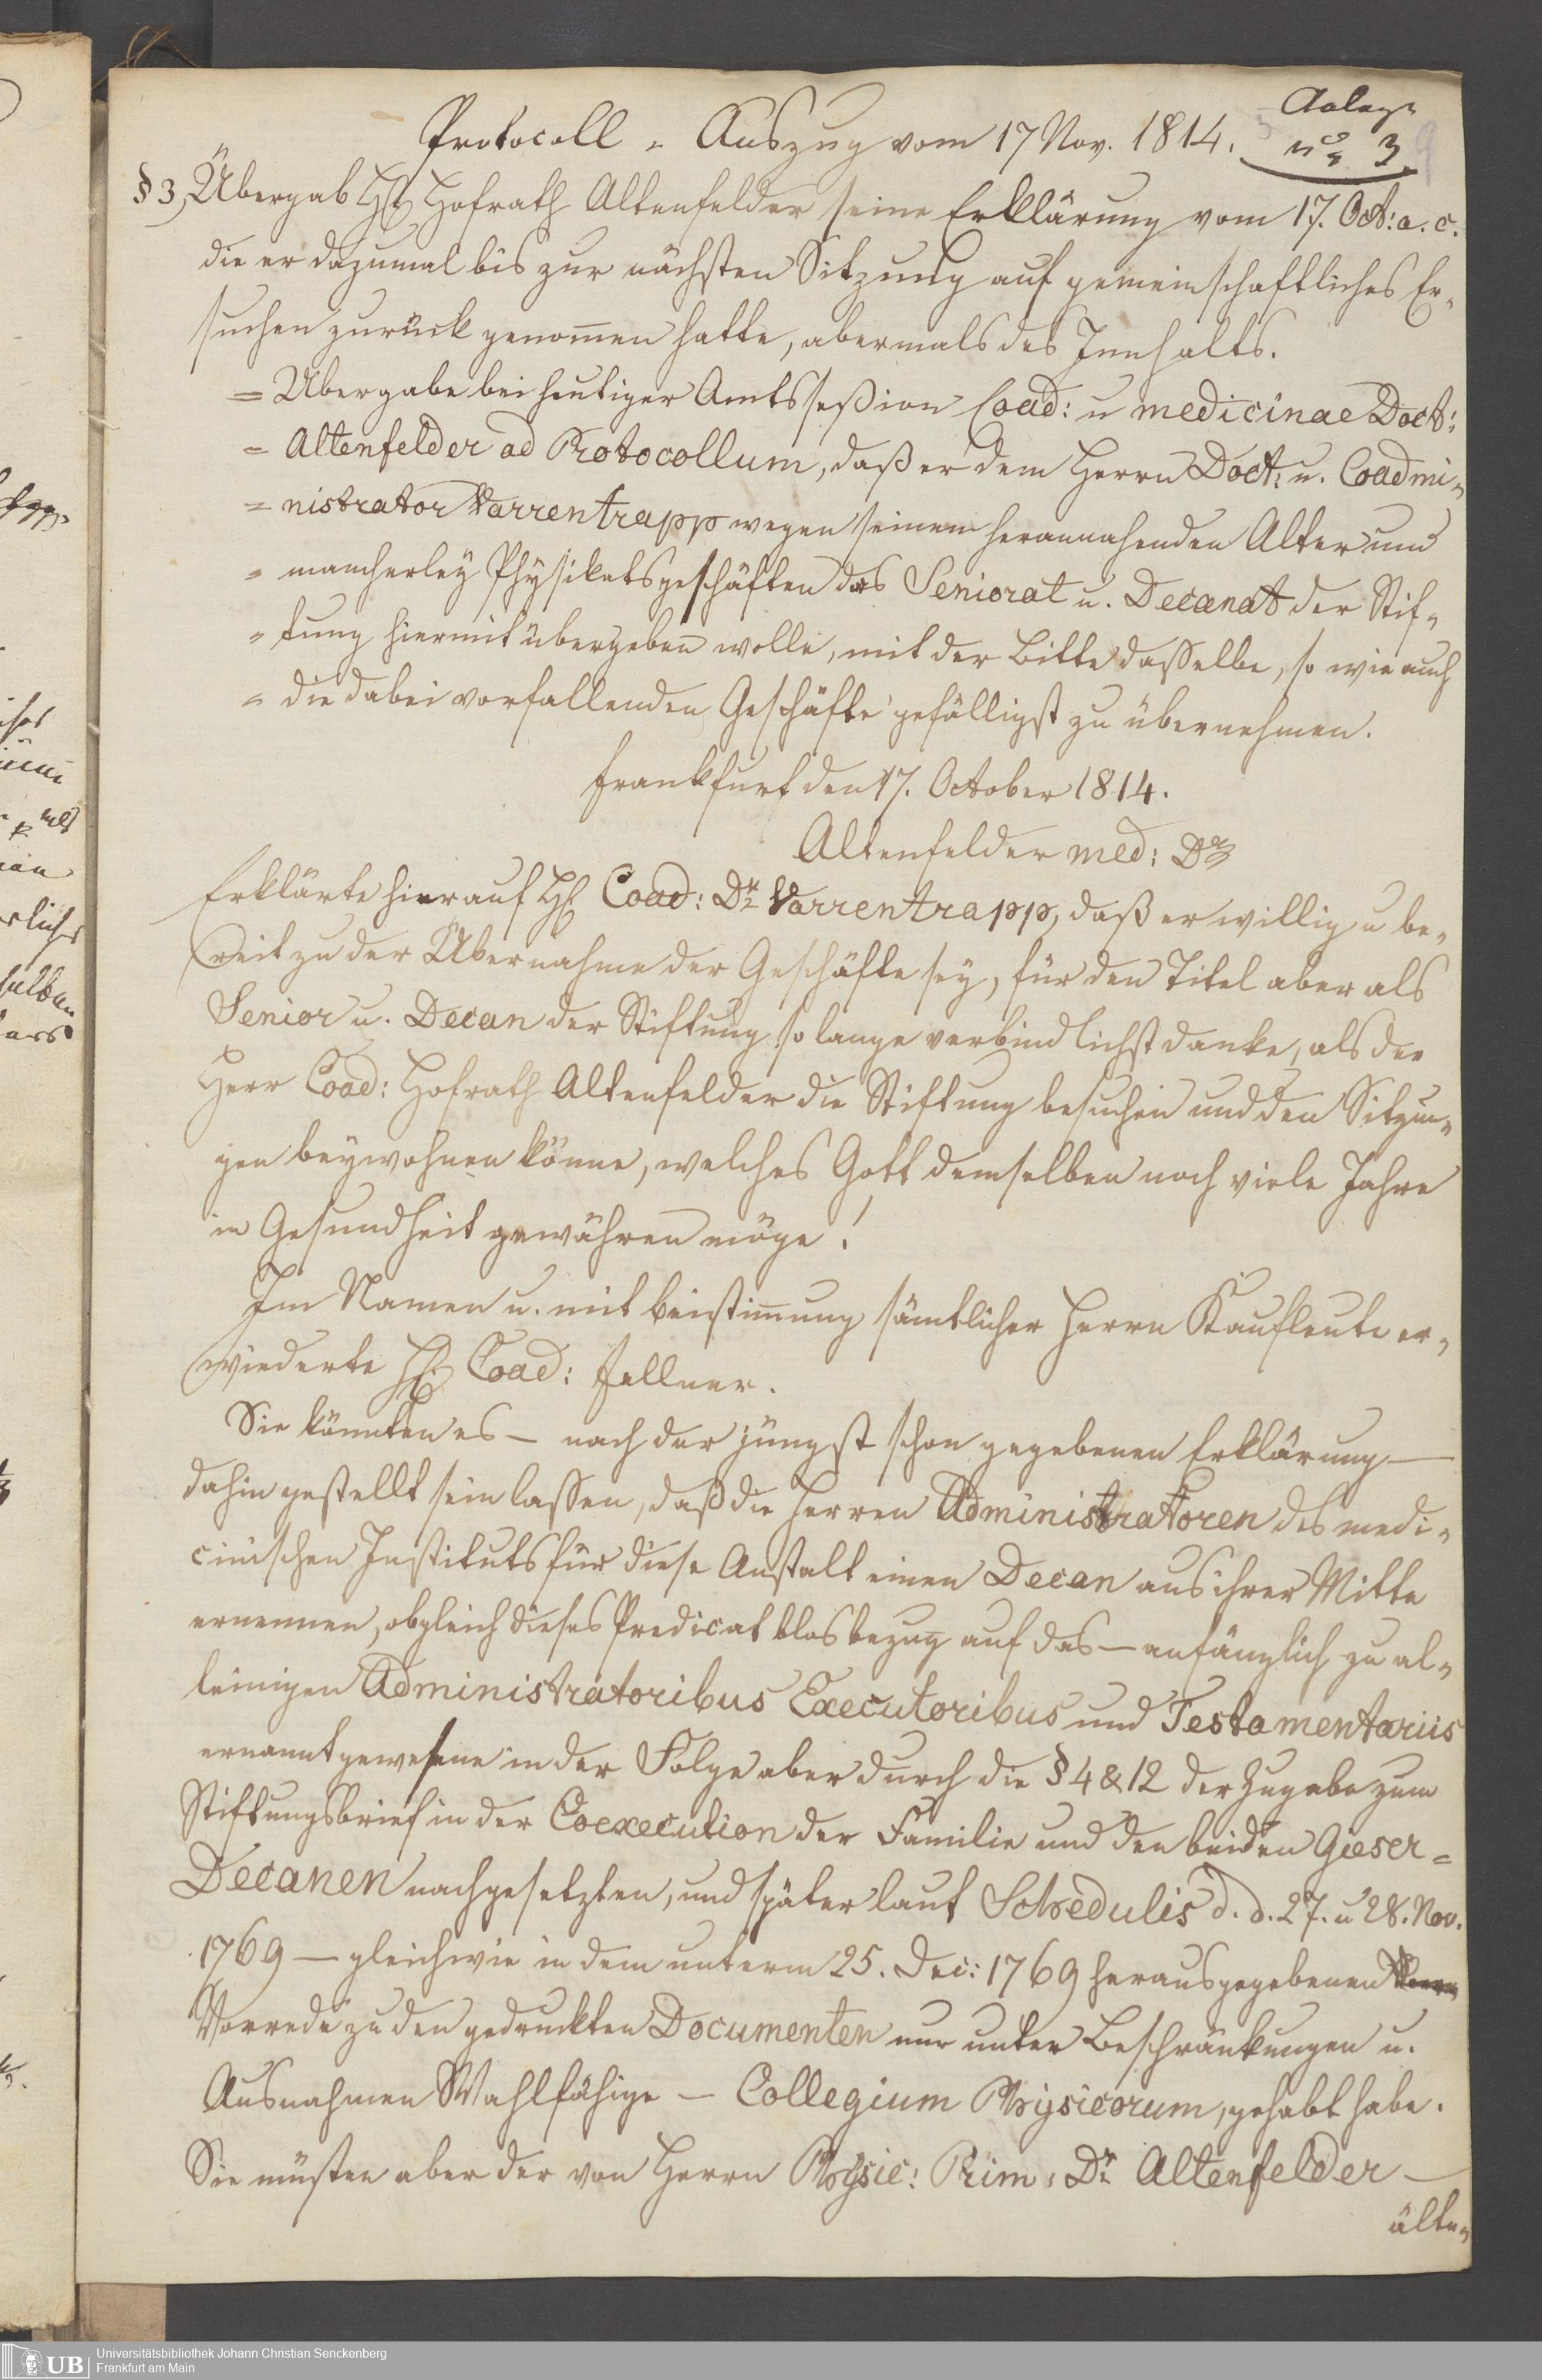 Anlage
n<sup>o</sup> 3.
Protocoll-Auszug vom 17 Nov. 1814.
§3, Übergab Hr. Hofrath Altenfelder seine Erklärung vom 17. Oct: a. c.
die er dazumal bis zur nächsten Sitzung auf gemeinschaftliches Er-
suchen zurück genom̄en hatte, abermals des Innhalts.
= Übergabe bei heutiger Amtsseßion Coad: u medicinae Doct:
= Altenfelder ad Protocollum, daß er dem Herrn Doct: u. Coadmi-
= nistrator Varrentrapp wegen seinem herannahenden Alter und
= mancherley Physikatsgeschäften das Seniorat u. Decanat der Stif-
= tung hiermit übergeben wolle, mit der Bitte dasselbe, so wie auch
= die dabei vorfallenden Geschäfte gefälligst zu übernehmen.
Frankfurt den 17. October 1814.
Altenfelder med: Dr
Erklärte hierauf Hr. Coad: Dr. Varrentrapp, daß er willig u be-
reit zu der Übernahme der Geschäfte sey, für den Titel aber als
Senior u. Decan der Stiftung so lange verbindlichst danke, als der
Herr Coad: Hofrath Altenfelder die Stiftung besuchen und den Sitzun-
gen beywohnen könne, welches Gott demselben noch viele Jahre
in Gesundheit gewähren möge!
Im Namen u. mit beistim̄ung sämtlicher Herrn Kaufleute er-
wiederte Hr. Coad: Fellner.
Sie könnten es — nach der jüngst schon gegebenen Erklärung —
dahin gestellt sein lassen, daß die Herren Administratoren des medi-
cinischen Instituts für diese Anstalt einen Decan aus ihrer Mitte
ernennen, obgleich dieses Predicat blos bezug auf das — anfänglich zu al-
leinigen Administratoribus Executoribus und Testamentariis
ernannt gewesene in der Folge aber durch die § 4 & 12 der Zugabe zum
Stiftungsbrief in der Coexecution der Familie und den beiden Gieser-
Decanen nachgesetzten, und später laut Schedulis d. d. 27. u 28. Nov.
1769 — gleichwie in dem unterm 25. Dec: 1769 herausgegebenen
Vorrede zu den gedruckten Documenten nur unter Beschränkungen u.
Ausnahmen Wahlfähige — Collegium Physicorum, gehabt habe.
Sie müsten aber der von Herrn Physic: Prim: Dr Altenfelder —
älte-
UB
Universitätsbibliothek Johann Christian Senckenberg
Frankfurt am Main